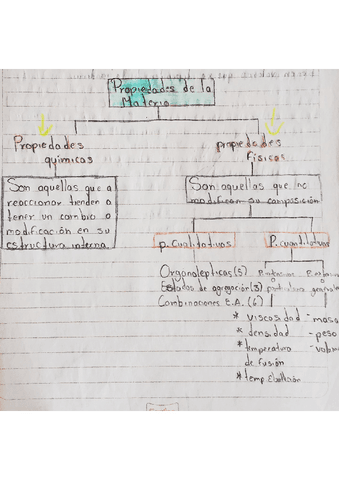 Propiedades de la
Materia
Propiedades
quimicas
propiedades
Físicas
Son aquellas que a
reaccionar tienden a
tener un cambio o
modificación en su
estructura interna.
Son aquellas que no
modifican su composición
p. Cualitativos
P. cuantitativos
Organolepticas (5)
Estados de agregación (3)
Combinaciones E.A. (6)
* viscosidad
* densidad
* temperatura
de fusión
* temp. Ebullición
- masa
- peso